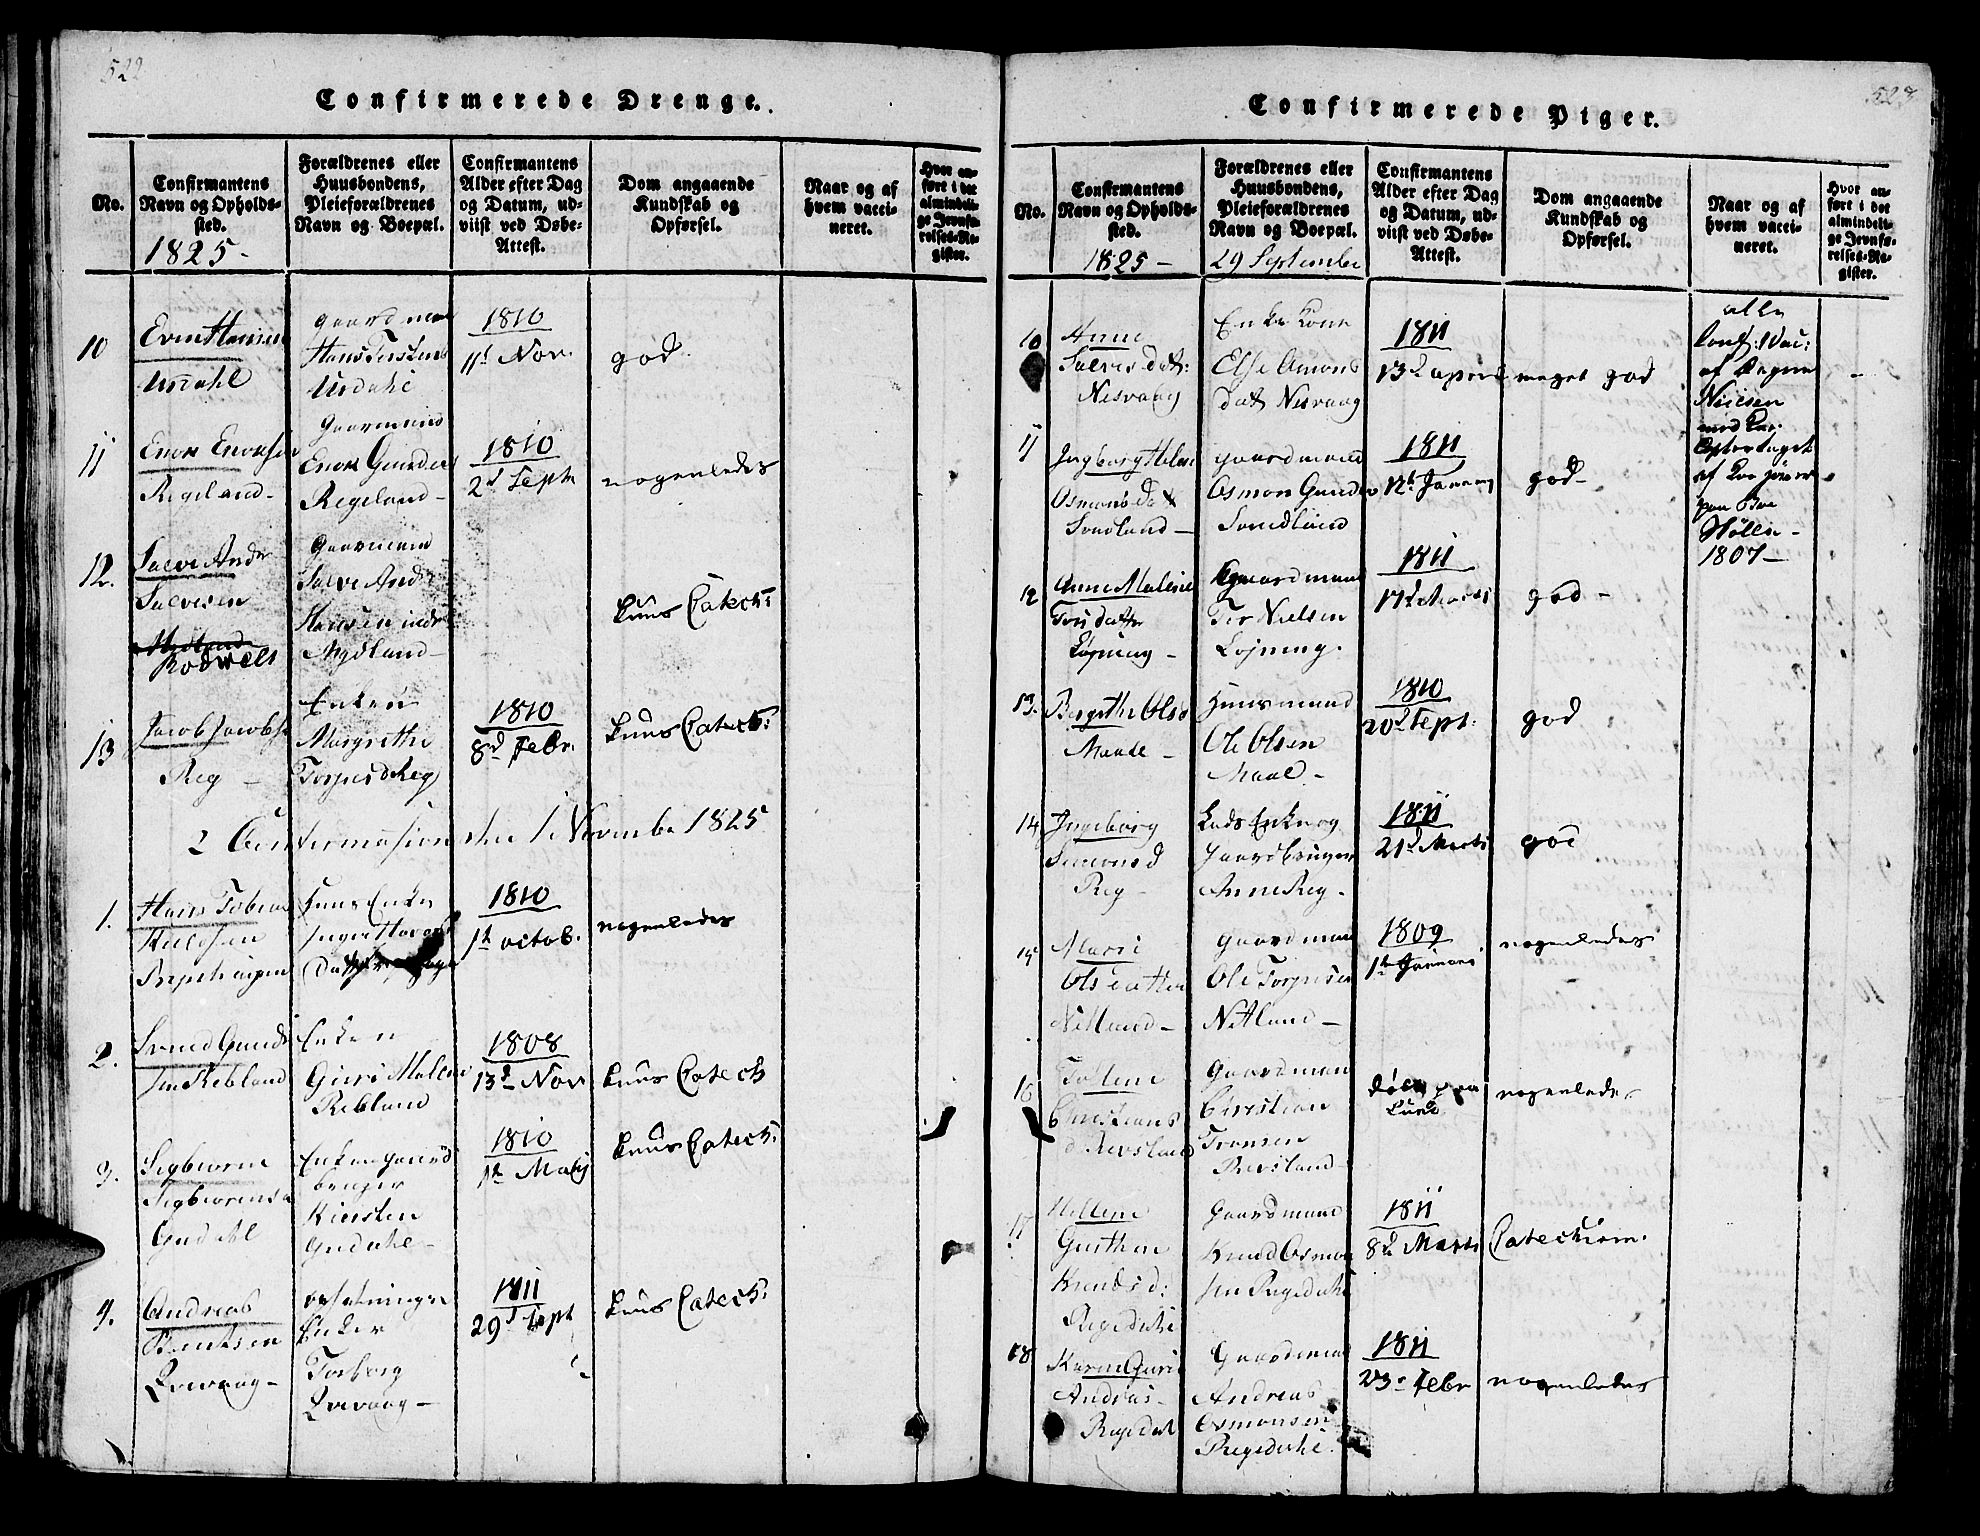 522
Confirmerede Drenge.
No.
Confirmantens
Navn og Opholds-
sted.
1825-
Forældrenes eller
Huusbondens,
Pleieforældrenes
Navn og Boepæl.
Confirmantens
Alder efter Dag
og Datum, ud-
viist ved Døbe-
Attest.
Dom angaaende
Kundskab og
Opførsel.
Naar og af
hvem vacci-
neret.
Hvor an-
ført i det
almindeli-
ge Jevnfø-
relses-Re-
gister.
10
Even Hansen
Urdahl
gaardman
Hans
Urdahl
1810
11t Nov.
god
11
Enok Enoksen
Regeland-
Gaarmand
Enok Gunders
Regeland-
1810
2d Septr
nogenledes
12.
Salve Andr
Salvesen
Rodvelt
Gaarmand
Salve Andr
Hansen indr
Mydland-
kuns Catech:
13
Jacob Jacobse
Reg -
Enken
Margrethe
Torjusd Reg
1810
8d Febr.
kuns Catech:
2 Confirmasion den 1 November 1825
1.
Hans Tobias
Huus Enke
1810
1t octob.
nogenledes
2.
Svend Gunder
sen Rebland
Enken
Guri Malene
Rebland
1808
13d Nov
kuns Catech
3.
Sigbiørn
Sigbiørensen
Gudahl
Enken gaard
bruger
Kiersten
Gudahl-
1810
1t Maij
kuns Catech:
4.
Andreas
Bentsen
opsetninger
Enken
Torborg
1811
29d Sept
kuns Catech:
523
Confirmerede Piger.
No.
Confirmantens
Navn og Opholds-
sted.
1825-
Forældrenes eller
Huusbondens,
Pleieforældrenes
Navn og Boepæl.
29 September
Confirmantens
Alder efter Dag
og Datum, ud-
viist ved Døbe-
Attest.
Dom angaaende
Kundskab og
Opførsel.
Naar og af
hvem vacci-
neret.
Hvor an-
ført i det
almindeli-
ge Jevnfø-
relses-Re-
gister.
10
Anne
Salvesdat:
Nesvaag
Enke Kone
Else Amons
dat Nesvaag
1811
13d april
meget god
alle
Conf: Vac:
af
Nielsen
af
paa
1807-
11
Ingborg Helene
Osmonsdat
Svadland-
gaardmand
Osmon Gunders
Svadland
1811
12t Januarj
god-
12
Anne Malene
Torsdatter
Løyning-
gaardmand
Tor Nielsen
Løjning.
1811
17d Marts
god-
13.
Bergithe Olsd
Maale-
Huusmand
Ole Olsen
Maal-
1810
20d Sept.
god
14
Ingeborg
Simonsd
Reg-
Enke og
gaardbruger
Anne Reg-
1811
21d Marts
god
15
Marri
Olsdatter
Netland-
gaardman
Ole Torjusen
Netland-
1809
1t Januari
nogenledes
16
Tolene
Christians
d Revsland
gaardman
Christian
Tronsen
Revsland-
døbt paa
Lund
nogenledes
17
Hellene
Gurthrine
Knudsd:
Regedahl
gaardmand
Knud Osmon
sen Regedahl
1811
8d Marts
Catechism.
18
Karen Guria
Andras-
Regedal
Gaardman
Andreas
Osmonsen
Regedahl.
1811
23- Febr
nogenledes